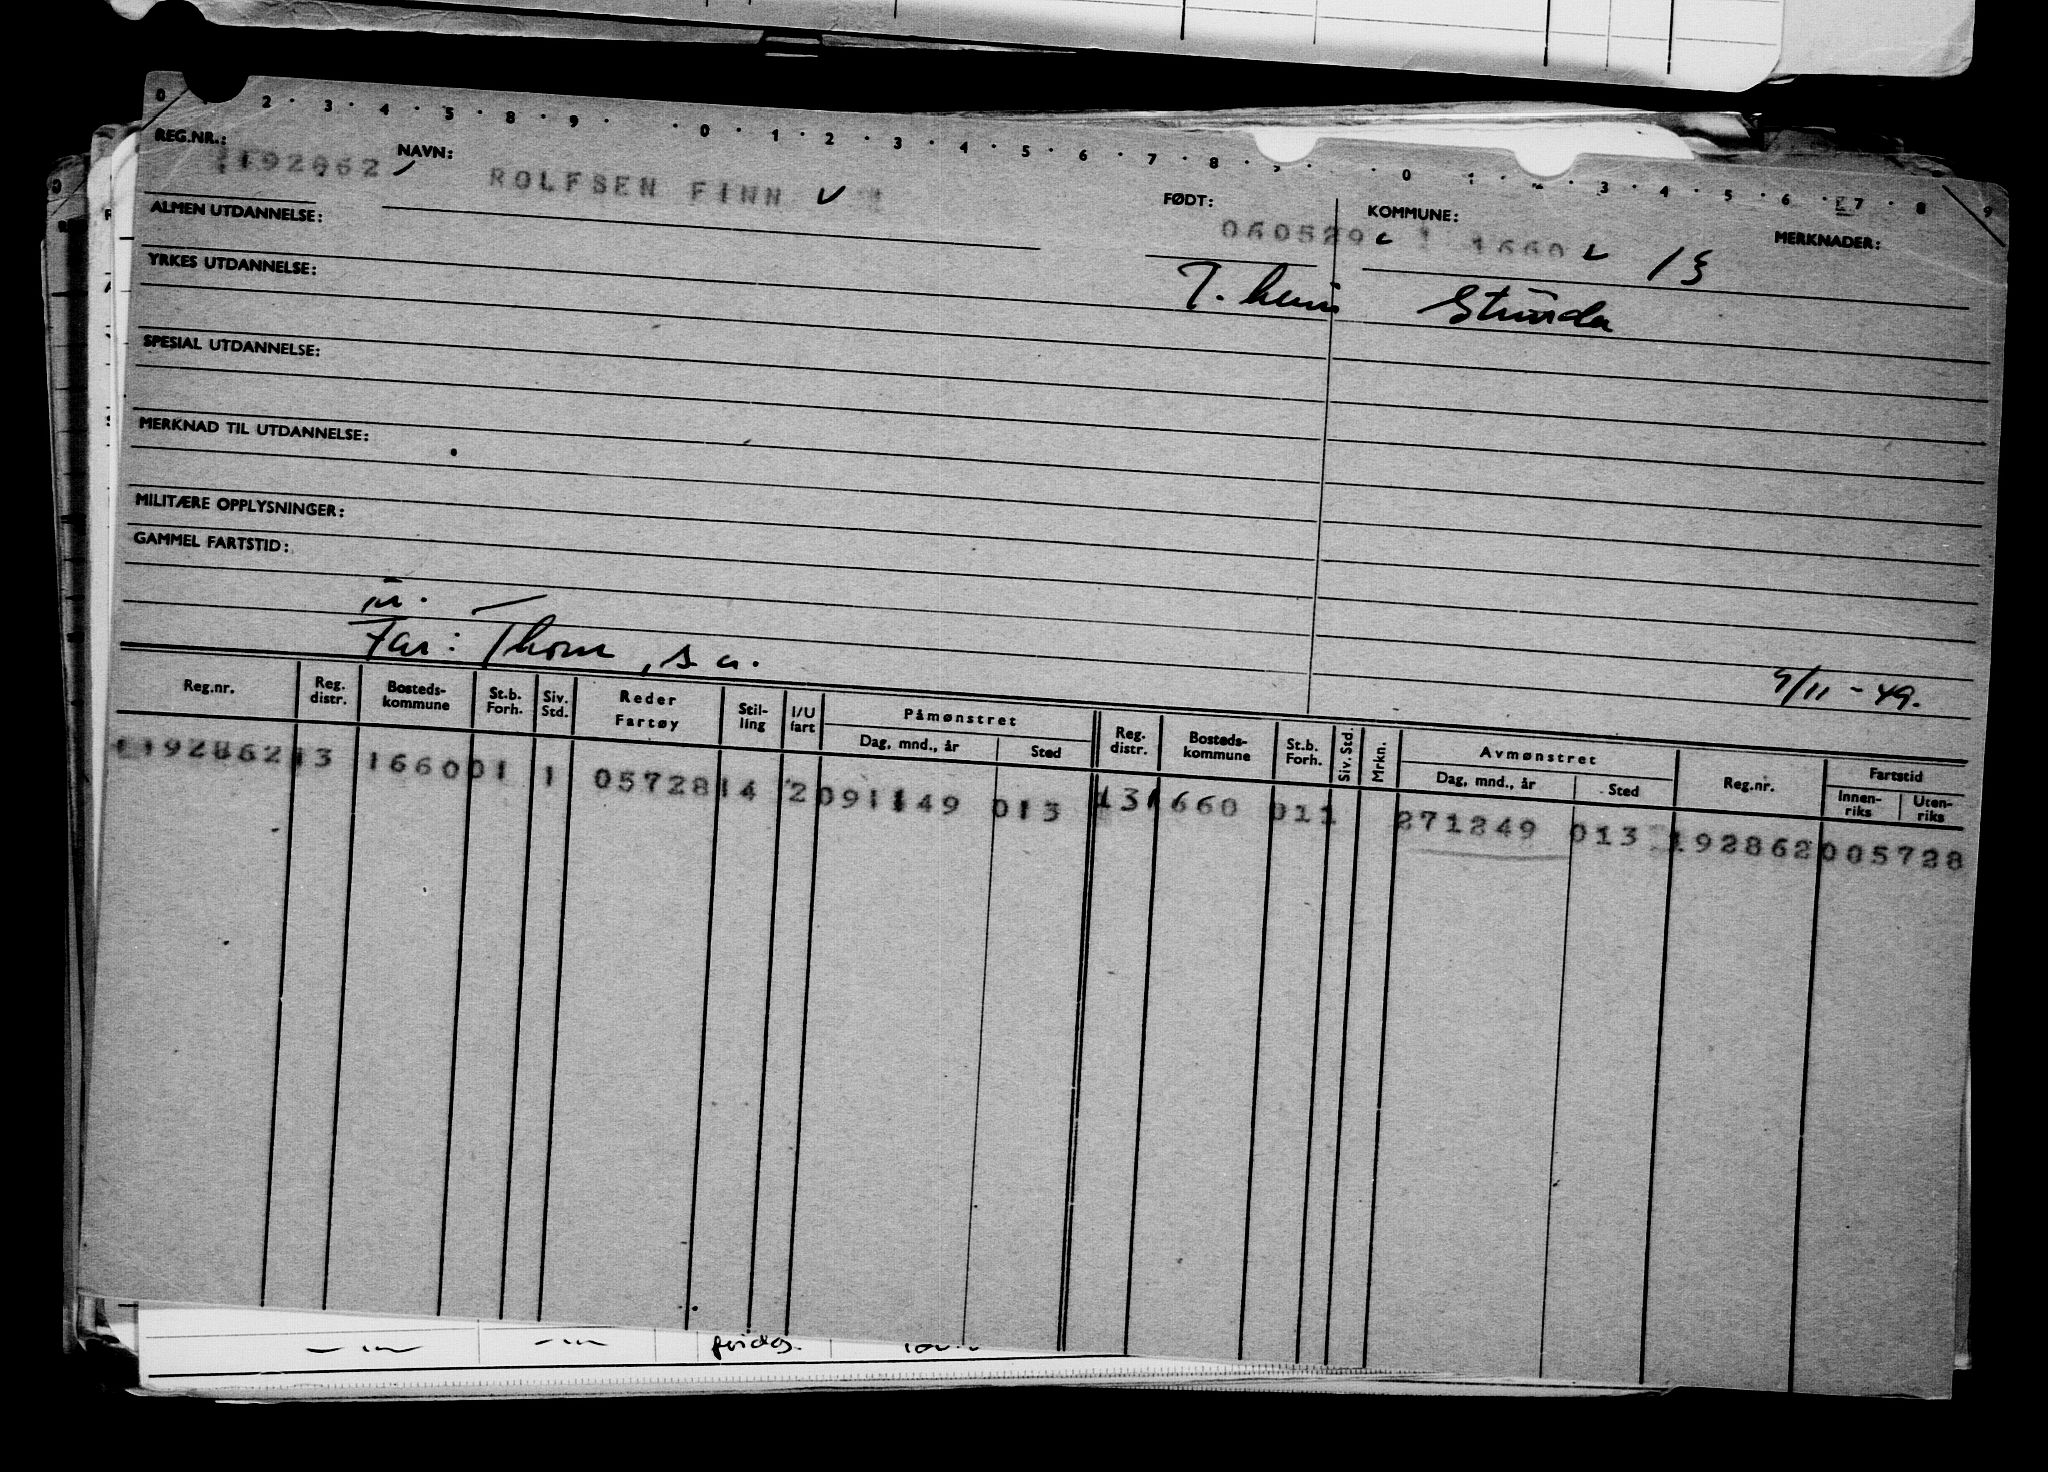 0 2 · 3 · 4 · 5 · 8 · 9 · · 0 · 1 · 2 · 3 · 4 · 5 · 6 · 7 · 8 · · 0 · 3 · 4 · 5 · 6 · 7 · 8 · 9
REG.NR.: 192862 NAVN: ROLFSEN FINN FØDT: 060529 KOMMUNE: 1660 13 MERKNADER:
ALMEN UTDANNELSE:
YRKES UTDANNELSE:
T.heim Strinda
SPESIAL UTDANNELSE:
MERKNAD TIL UTDANNELSE:
MILITÆRE OPPLYSNINGER:
GAMMEL FARTSTID:
Far: Thom , s.a.
9/11 - 49.
Reg.nr. Reg. distr. Bosteds- kommune St.b. Forh. Siv. Std. Reder Fartøy Stil- ling I/U fart Påmønstret Dag, mnd., år Sted Reg. distr. Bosteds- kommune St.b. Forh. Siv. Std. Mrkn. Avmønstret Dag, mnd., år Sted Reg.nr. Fartstid Innen- riks Uten- riks
192862 13 1660 01 1 05728 14 2 091149 013 13 1660 01 1 271249 013 192862 005728